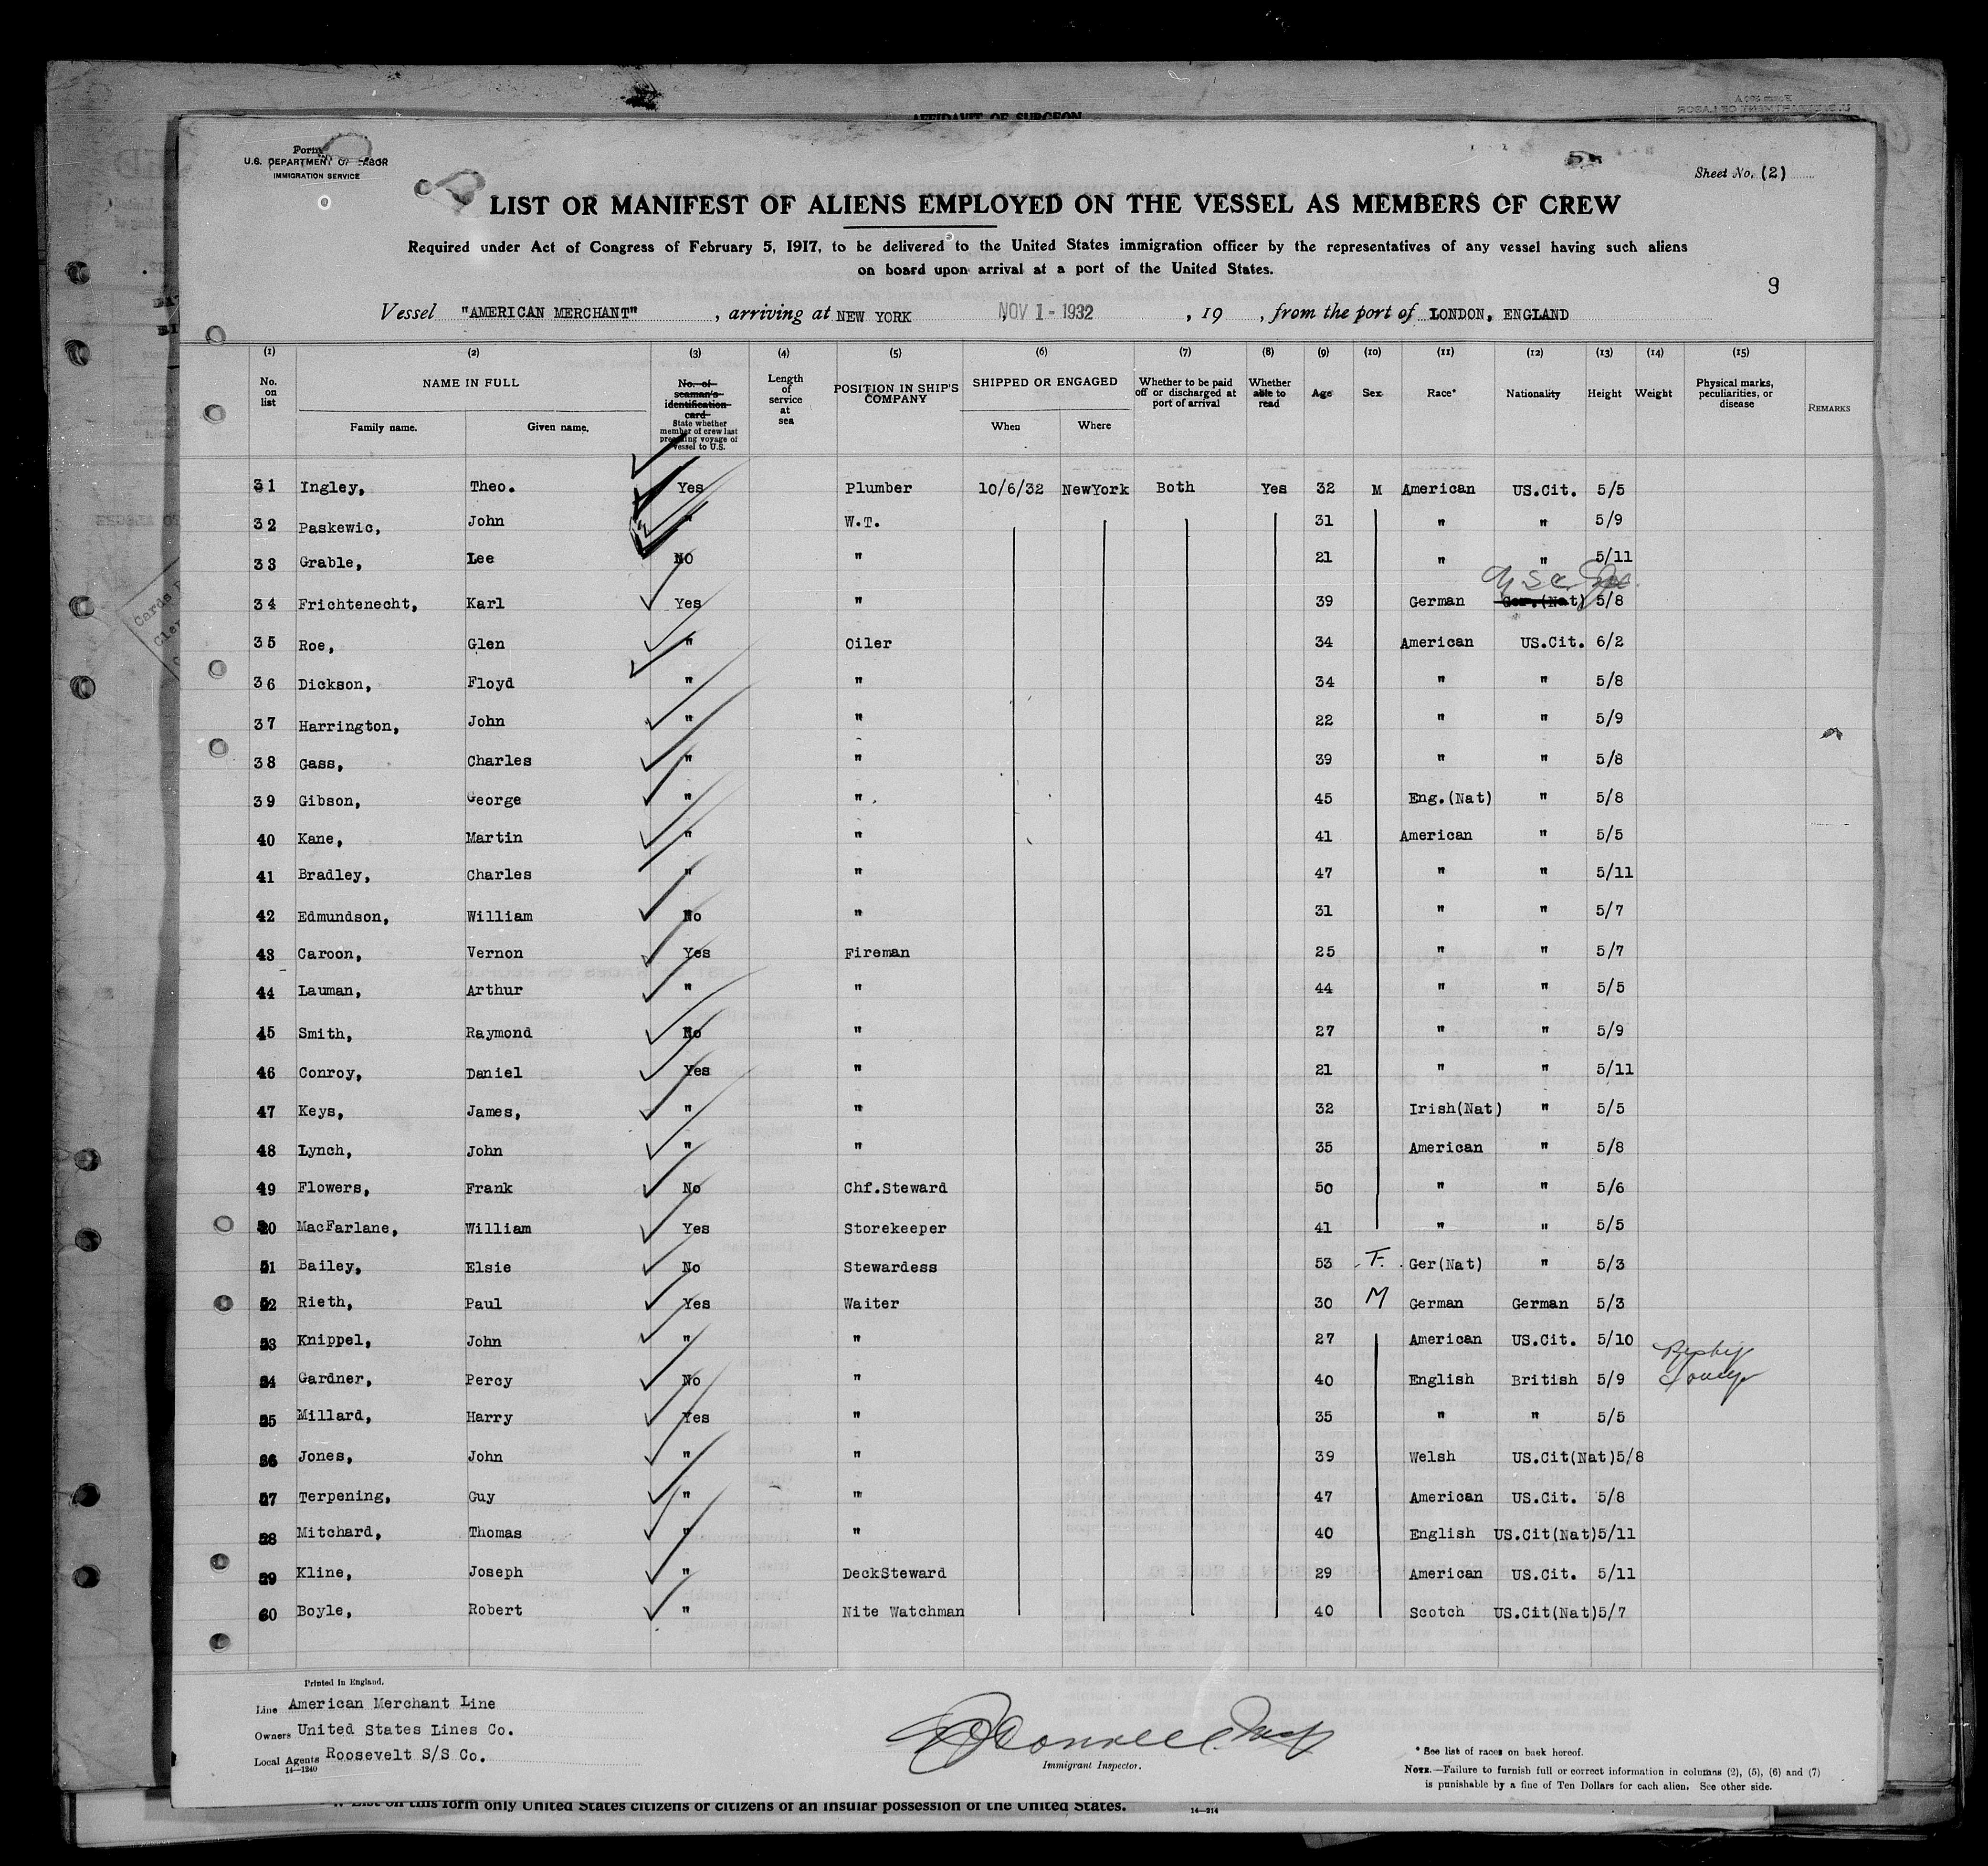 AFFIDAVIT OF SURGEON
Form
U.S. DEPARTMENT OF LABOR
IMMIGRATION SERVICE
Sheet No. (2)
LIST OR MANIFEST OF ALIENS EMPLOYED ON THE VESSEL AS MEMBERS OF CREW
Required under Act of Congress of February 5, 1917, to be delivered to the United States immigration officer by the representatives of any vessel having such aliens
on board upon arrival at a port of the United States.
9
Vessel "AMERICAN MERCHANT", arriving at NEW YORK NOV 1 - 1932, 19 , from the port of LONDON, ENGLAND
(1) (2) (3) (4) (5) (6) (7) (8) (9) (10) (11) (12) (13) (14) (15)
No. on list NAME IN FULL Family name. Given name. No. of seaman's identification card State whether member of crew last preceding voyage of vessel to U.S. Length of service at sea POSITION IN SHIP'S COMPANY SHIPPED OR ENGAGED When Where Whether to be paid off or discharged at port of arrival Whether able to read Age Sex Race* Nationality Height Weight Physical marks, peculiarities, or disease REMARKS
31 Ingley, Theo. Yes Plumber 10/6/32 NewYork Both Yes 32 M American US.Cit. 5/5
32 Paskewic, John " W.T. 31 " " 5/9
33 Grable, Lee NO " 21 " " 5/11
34 Frichtenecht, Karl Yes " 39 German Ger.(Nat) 5/8
35 Roe, Glen " Oiler 34 American US.Cit. 6/2
36 Dickson, Floyd " " 34 " " 5/8
37 Harrington, John " " 22 " " 5/9
38 Gass, Charles " " 39 " " 5/8
39 Gibson, George " " 45 Eng.(Nat) " 5/8
40 Kane, Martin " " 41 American " 5/5
41 Bradley, Charles " " 47 " " 5/11
42 Edmundson, William No " 31 " " 5/7
43 Caroon, Vernon Yes Fireman 25 " " 5/7
44 Lauman, Arthur " " 44 " " 5/5
45 Smith, Raymond No " 27 " " 5/9
46 Conroy, Daniel Yes " 21 " " 5/11
47 Keys, James, " " 32 Irish(Nat) " 5/5
48 Lynch, John " " 35 American " 5/8
49 Flowers, Frank No Chf.Steward 50 " " 5/6
50 MacFarlane, William Yes Storekeeper 41 " " 5/5
51 Bailey, Elsie No Stewardess 53 F. Ger(Nat) " 5/3
52 Rieth, Paul Yes Waiter 30 M German German 5/3
53 Knippel, John " " 27 American US.Cit. 5/10
54 Gardner, Percy No " 40 English British 5/9
55 Millard, Harry Yes " 35 " " 5/5
56 Jones, John " " 39 Welsh US.Cit(Nat)5/8
57 Terpening, Guy " " 47 American US.Cit. 5/8
58 Mitchard, Thomas " " 40 English US.Cit(Nat)5/11
59 Kline, Joseph " DeckSteward 29 American US.Cit. 5/11
60 Boyle, Robert " Nite Watchman 40 Scotch US.Cit(Nat)5/7
Printed in England.
Line American Merchant Line
Owners United States Lines Co.
Local Agents Roosevelt S/S Co.
14—1240
Immigrant Inspector.
* See list of races on back hereof.
NOTE.—Failure to furnish full or correct information in columns (2), (5), (6) and (7)
is punishable by a fine of Ten Dollars for each alien. See other side.
List on this form only United States citizens or citizens of an insular possession of the United States.
14—214